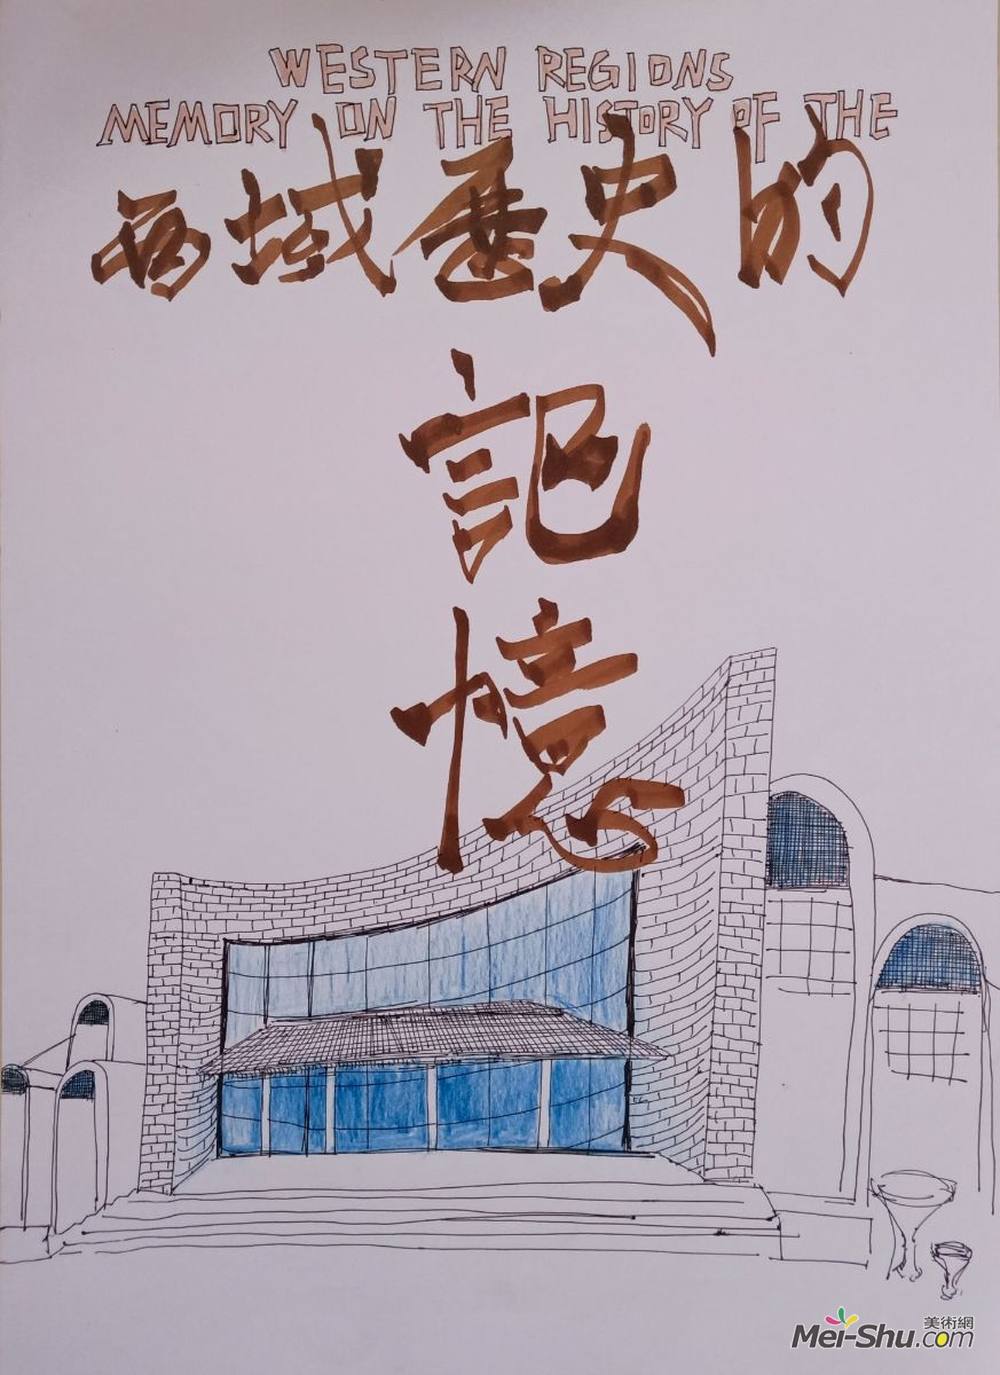 WESTERN REGIONS
MEMORY ON THE HISTORY OF THE
西域歷史的
記
憶
美術網
Mei-Shu.com